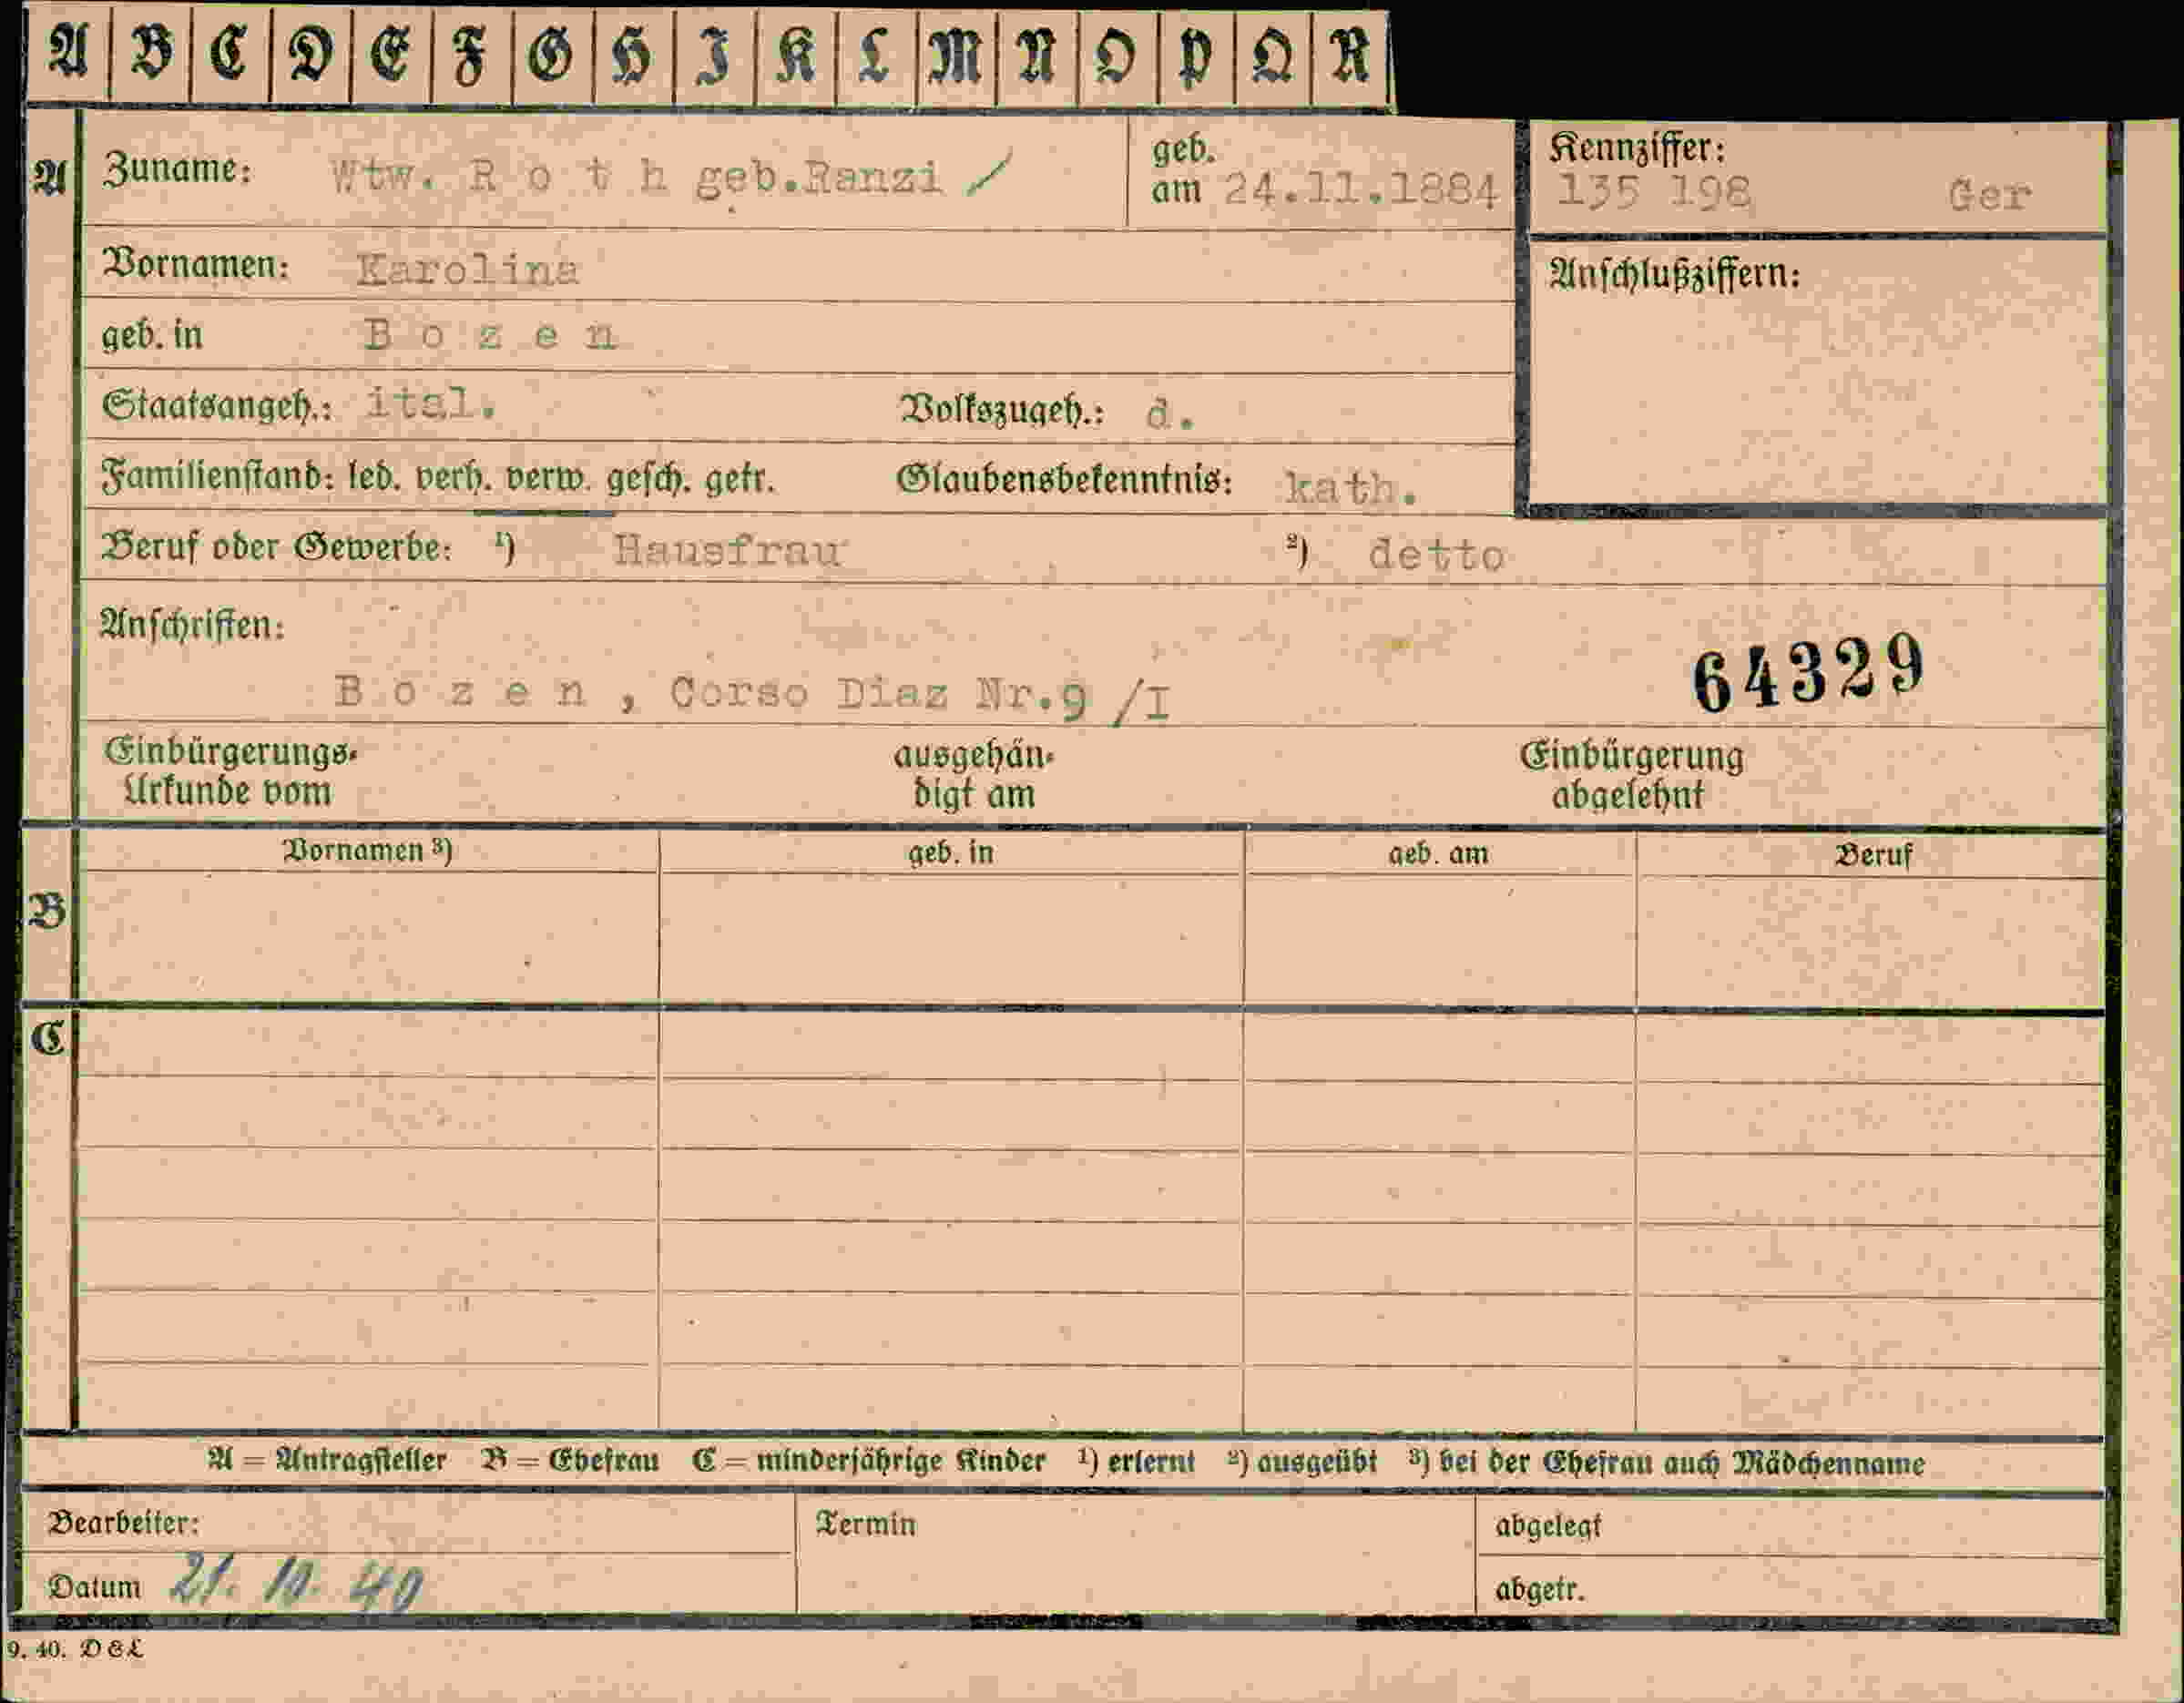 A B C D E F G H I K L M N O P Q R
A Zuname: Wtw. R o t h geb.Ranzi / geb. am 24.11.1884 Kennziffer: 135 198 Ger
Vornamen: Karolina Anschlußziffern:
geb. in B o z e n
Staatsangeh.: ital. Volkszugeh.: d.
Familienstand: led. verh. verw. gesch. getr. Glaubensbekenntnis: kath.
Beruf oder Gewerbe: ¹) Hausfrau ²) detto
Anschriften:
64329
B o z e n , Corso Diaz Nr.9 /I
Einbürgerungs- ausgehän- Einbürgerung
Urkunde vom digt am abgelehnt
Vornamen ³) geb. in geb. am Beruf
B
C
A = Antragsteller B = Ehefrau C = minderjährige Kinder ¹) erlernt ²) ausgeübt ³) bei der Ehefrau auch Mädchenname
Bearbeiter: Termin abgelegt
Datum 21. 10. 40 abgetr.
9. 40. D & L